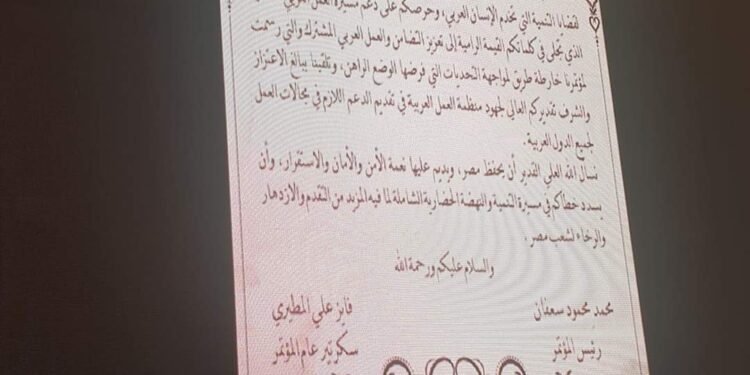 لقضايا التنمية التي تخدم الإنسان العربي، وحرصكم على دعم مسيرة العمل العربي
الذي تجلى في كلماتكم القيمة الرامية إلى تعزيز التضامن والعمل العربي المشترك والتي رسمت
لمؤتمرنا خارطة طريق لمواجهة التحديات التي فرضها الوضع الراهن، وتلقينا ببالغ الاعتزاز
والشرف تقديركم العالي لجهود منظمة العمل العربية في تقديم الدعم اللازم في مجالات العمل
لجميع الدول العربية.
نسأل الله العلي القدير أن يحفظ مصر، ويديم عليها نعمة الأمن والأمان والاستقرار، وأن
يسدد خطاكم في مسيرة التنمية والنهضة الحضارية الشاملة لما فيه المزيد من التقدم والازدهار
والرخاء لشعب مصر.
والسلام عليكم ورحمة الله
محمد محمود سعفان
فايز علي المطيري
رئيس المؤتمر
سكرتير عام المؤتمر